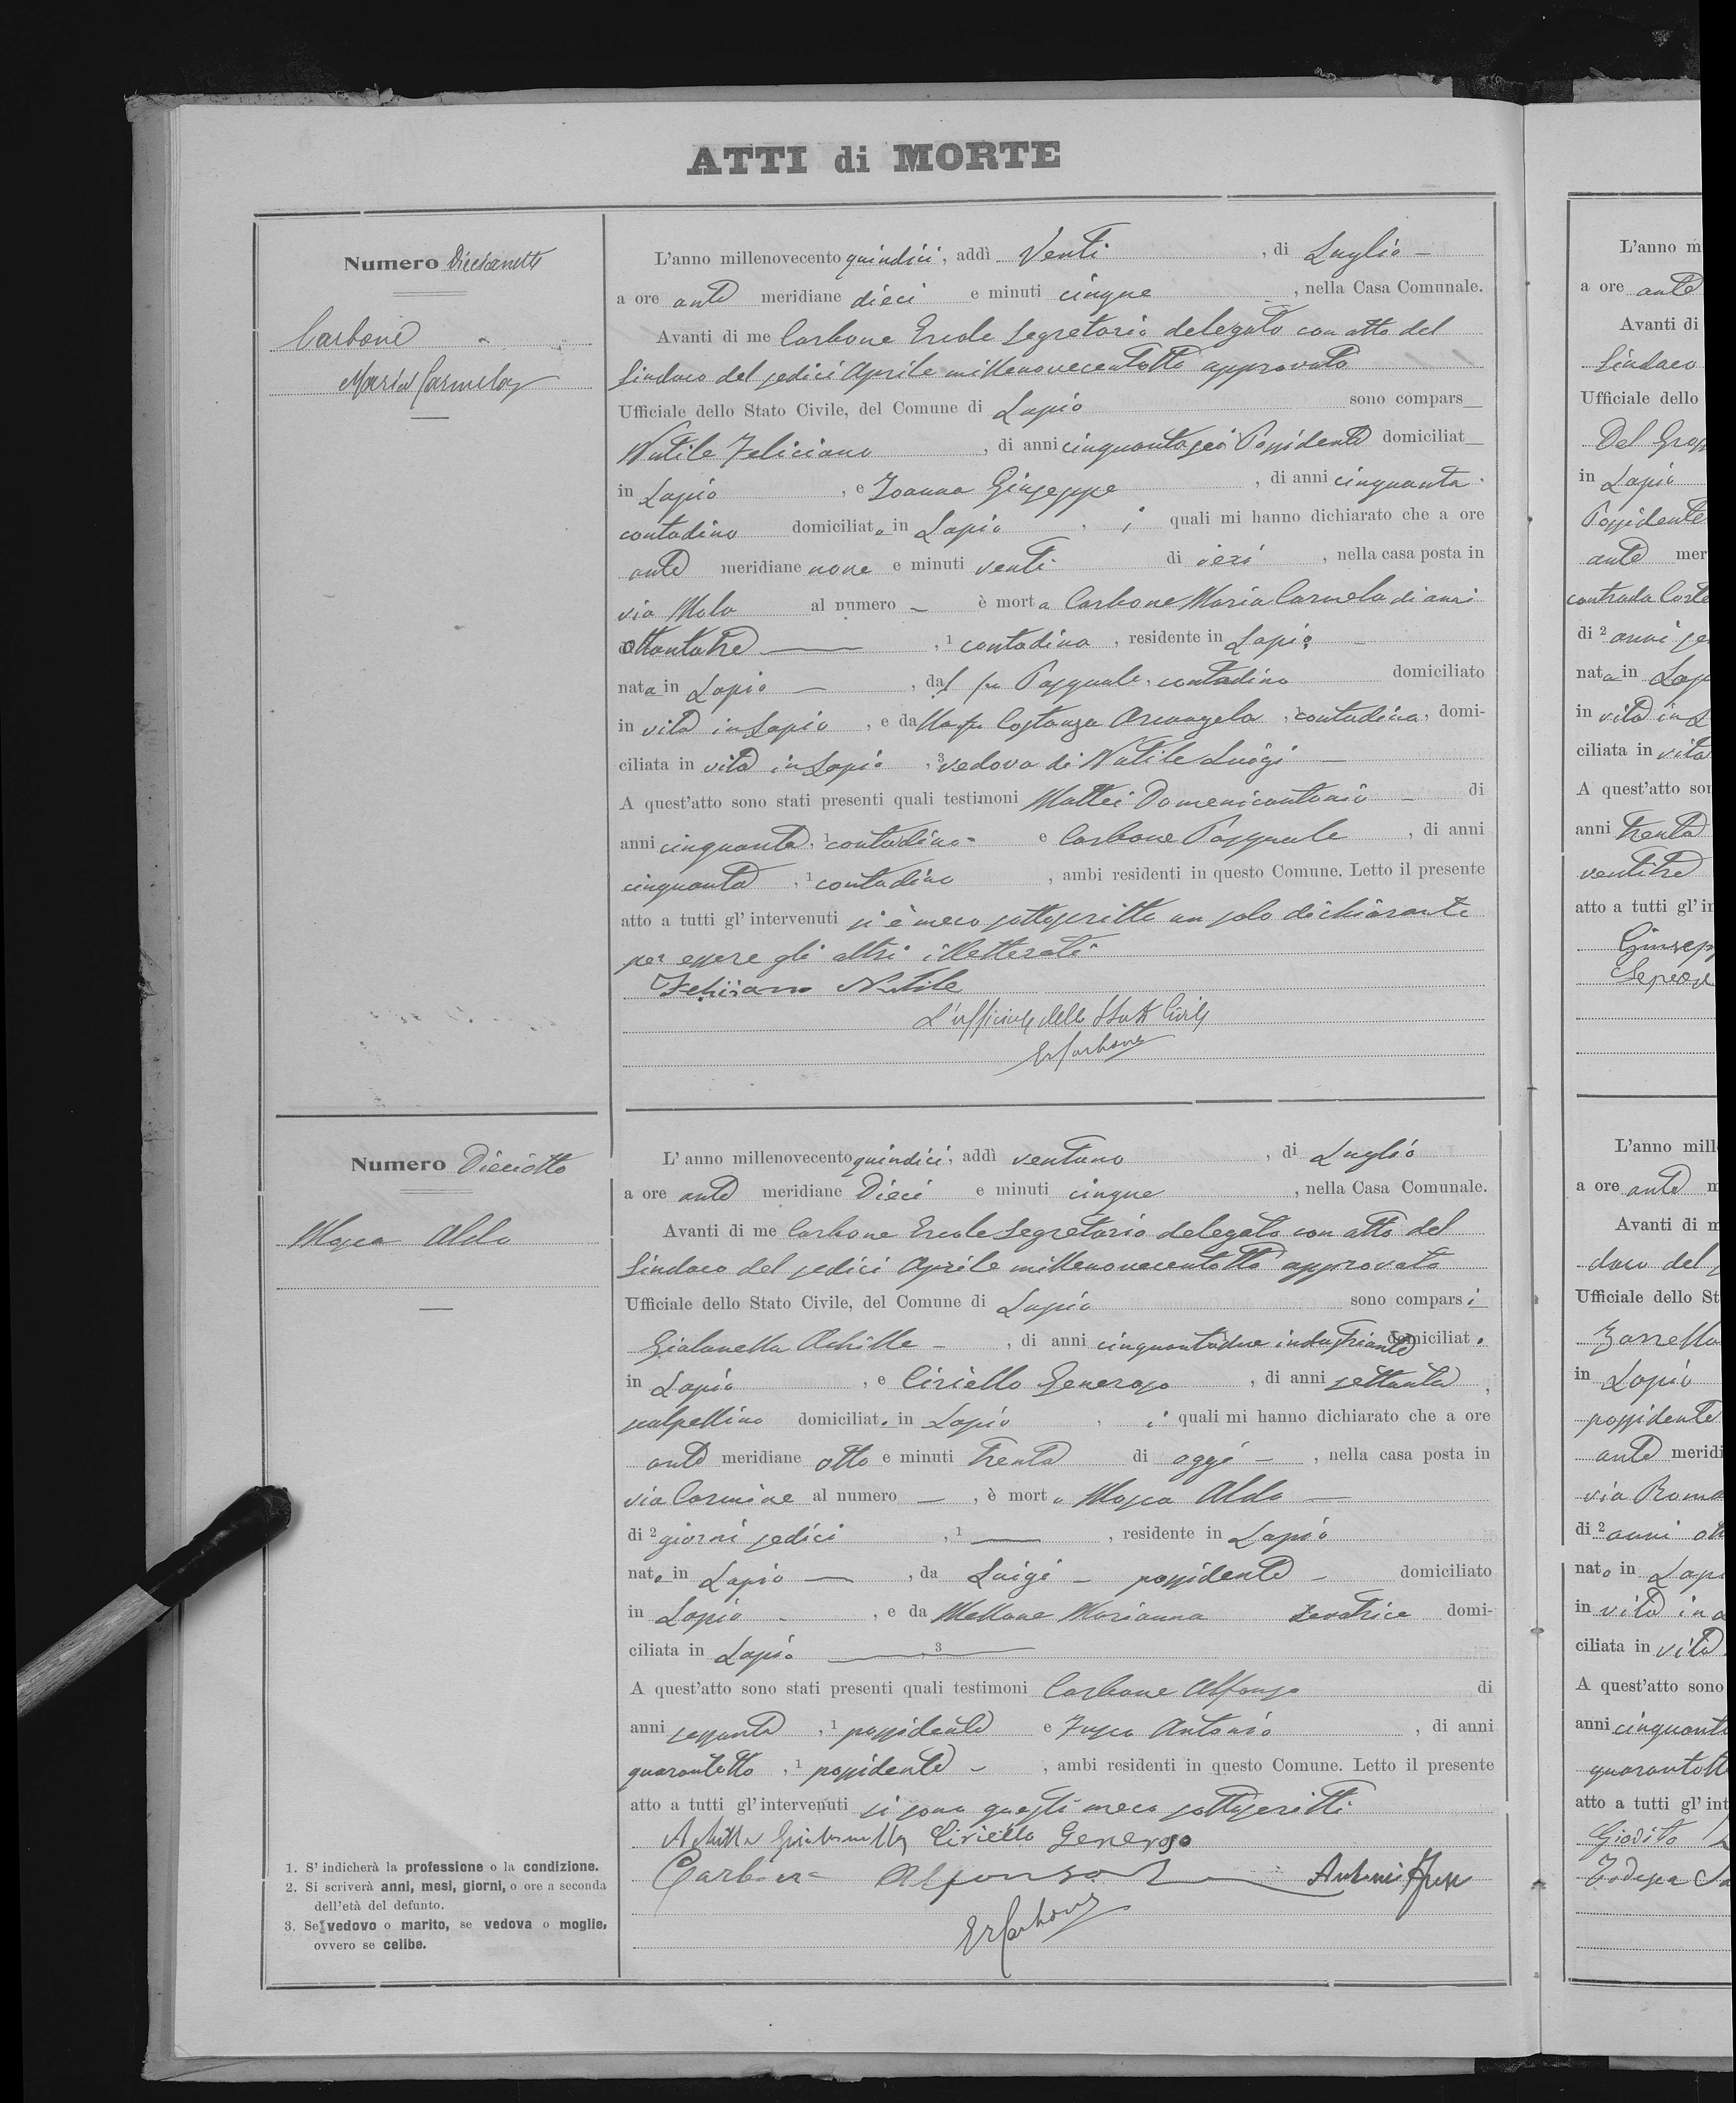 ATTI di MORTE
Numero Diciasette
Carbone
Maria Carmela
L'anno millenovecento quindici, addì Venti, di Luglio
a ore ante meridiane dieci e minuti cinque, nella Casa Comunale.
Avanti di me Carbone Ercole Segretario delegato con atto del
Sindaco del sedici Aprile millenovecentotto approvato
Ufficiale dello Stato Civile, del Comune di Lapio sono compars
Nutile Feliciano, di anni cinquantasei Possidente domiciliat
in Lapio, e Joanna Giuseppe, di anni cinquanta.
contadino domiciliato in Lapio, i quali mi hanno dichiarato che a ore
ante meridiane nove e minuti venti di ieri, nella casa posta in
via Mola al numero – è morta Carbone Maria Carmela di anni
ottantatre, 1 contadina, residente in Lapio
nata in Lapio, dal fu Pasquale, contadino domiciliato
in vita in Lapio, e da Costanza Arcangela, contadina, domi-
ciliata in vita in Lapio, 3 vedova di Nutile Luigi
A quest'atto sono stati presenti quali testimoni Mattei Domenicantonio di
anni cinquanta, 1 contadino e Carbone Pasquale, di anni
cinquanta, 1 contadino, ambi residenti in questo Comune. Letto il presente
atto a tutti gl'intervenuti si è meco sottoscritto un solo dichiarante
per essere gli altri illetterati
Feliciano Nutile
L'ufficiale dello Stato Civile
ErCarbone
Numero Dieciotto
Mosca Aldo
L'anno millenovecento quindici, addì ventuno, di Luglio
a ore ante meridiane Dieci e minuti cinque, nella Casa Comunale.
Avanti di me Carbone Ercole Segretario delegato con atto del
Sindaco del sedici Aprile millenovecentotto approvato
Ufficiale dello Stato Civile, del Comune di Lapio sono comparsi
Gialanella Achille, di anni cinquantadue industriante domiciliato
in Lapio, e Ciriello Generoso, di anni settanta,
scalpellino domiciliato in Lapio, i quali mi hanno dichiarato che a ore
ante meridiane otto e minuti trenta di oggi –, nella casa posta in
via Carmine al numero –, è morto Mosca Aldo
di 2 giorni sedici, 1 –, residente in Lapio
nato in Lapio –, da Luigi – possidente – domiciliato
in Lapio, e da Mellone Marianna domi-
ciliata in Lapio 3
A quest'atto sono stati presenti quali testimoni Carbone Alfonso di
anni sessanta, 1 possidente e Fusco Antonio, di anni
quarantotto, 1 possidente –, ambi residenti in questo Comune. Letto il presente
atto a tutti gl'intervenuti si sono questi meco sottoscritti
Achille Gialanella Ciriello Generoso
Carbone Alfonso Antonio Fusco
ErCarbone
1. S'indicherà la professione o la condizione.
2. Si scriverà anni, mesi, giorni, o ore a seconda
dell'età del defunto.
3. Se vedovo o marito, se vedova o moglie,
ovvero se celibe.
L'anno m
a ore ante
Avanti di
Sindaco
Ufficiale dello
Del Gross
in Lapio
Possidente
ante mer
contrada Corte
di 2 anni se
nata in Lap
in vita in L
ciliata in vita
A quest'atto son
anni trenta
ventitre
atto a tutti gl'in
Giusep
L'anno mill
a ore ante m
Avanti di m
daco del
Ufficiale dello St
Zarrella
in Lapio
possidente
ante meridi
via Roma
di 2 anni ott
nato in Lapi
in vita in
ciliata in vita
A quest'atto sono
anni cinquant
quarantott
atto a tutti gl'int